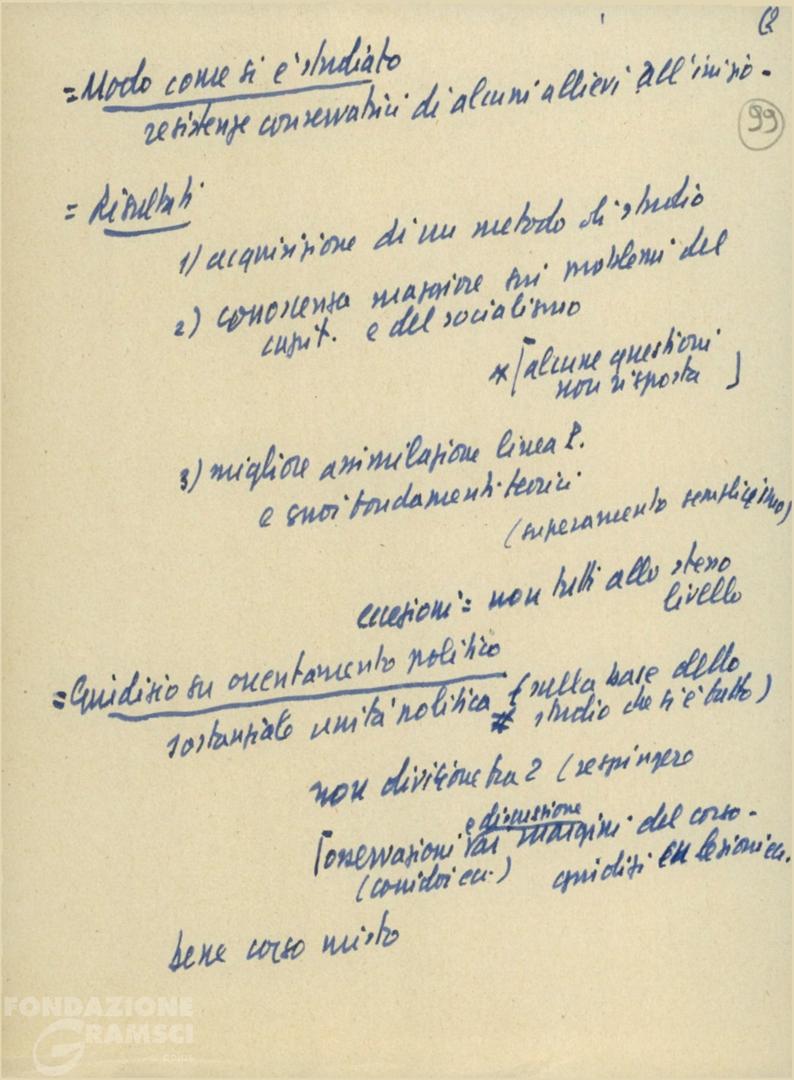 = Modo come si è studiato
resistenze conservatrici di alcuni allievi all'inizio -
99
= Risultati
1) acquisizione di un metodo di studio
2) conoscenza maggiore sui problemi del
capit. e del socialismo
* [alcune questioni
non risposta ]
3) migliore assimilazione linea P.
e suoi fondamenti teorici
(superamento semplicismo)
eccezioni = non tutti allo stesso
livello
= Giudizio su orientamento politico
sostanziale unità politica (sulla base dello
studio che si è fatto)
non divisione tra 2 (respingere
e discussione
[osservazioni ai margini del corso -
(corridoi ecc.) giudizi su lezioni ecc.
bene corso misto
FONDAZIONE
GRAMSCI